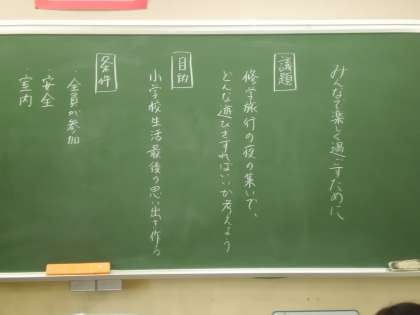 みんなで楽しく過ごすために
議題
修学旅行の夜の集いで、
どんな遊びをすればいいか考えよう
自助
小学校生活最後の思い出を作ろう
条件
・全員が参加
・安全
・室内